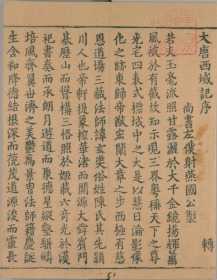 大唐西域記序
尚書左僕射燕國公製
若夫玉毫流照甘露灑於大千金鏡揚輝薰
風被於有截故知示現三界粵稱天下之尊
光宅四表式標域中之大是以慧日淪影像
化之跡東歸帝猷宏闡大章之步西極有慈
恩道場三藏法師諱玄奘俗姓陳氏其先潁
川人也帝軒提象控華渚而開源大舜賓門
基歷山而聳構三恪照於姬載六奇光於漢
祀書奏而承朗月遊道而聚德星縱壑駢鱗
培風齊翼世濟之美鬱為景胄法師籍慶誕
生含和降德結根深而𦶜茂道源浚而靈長